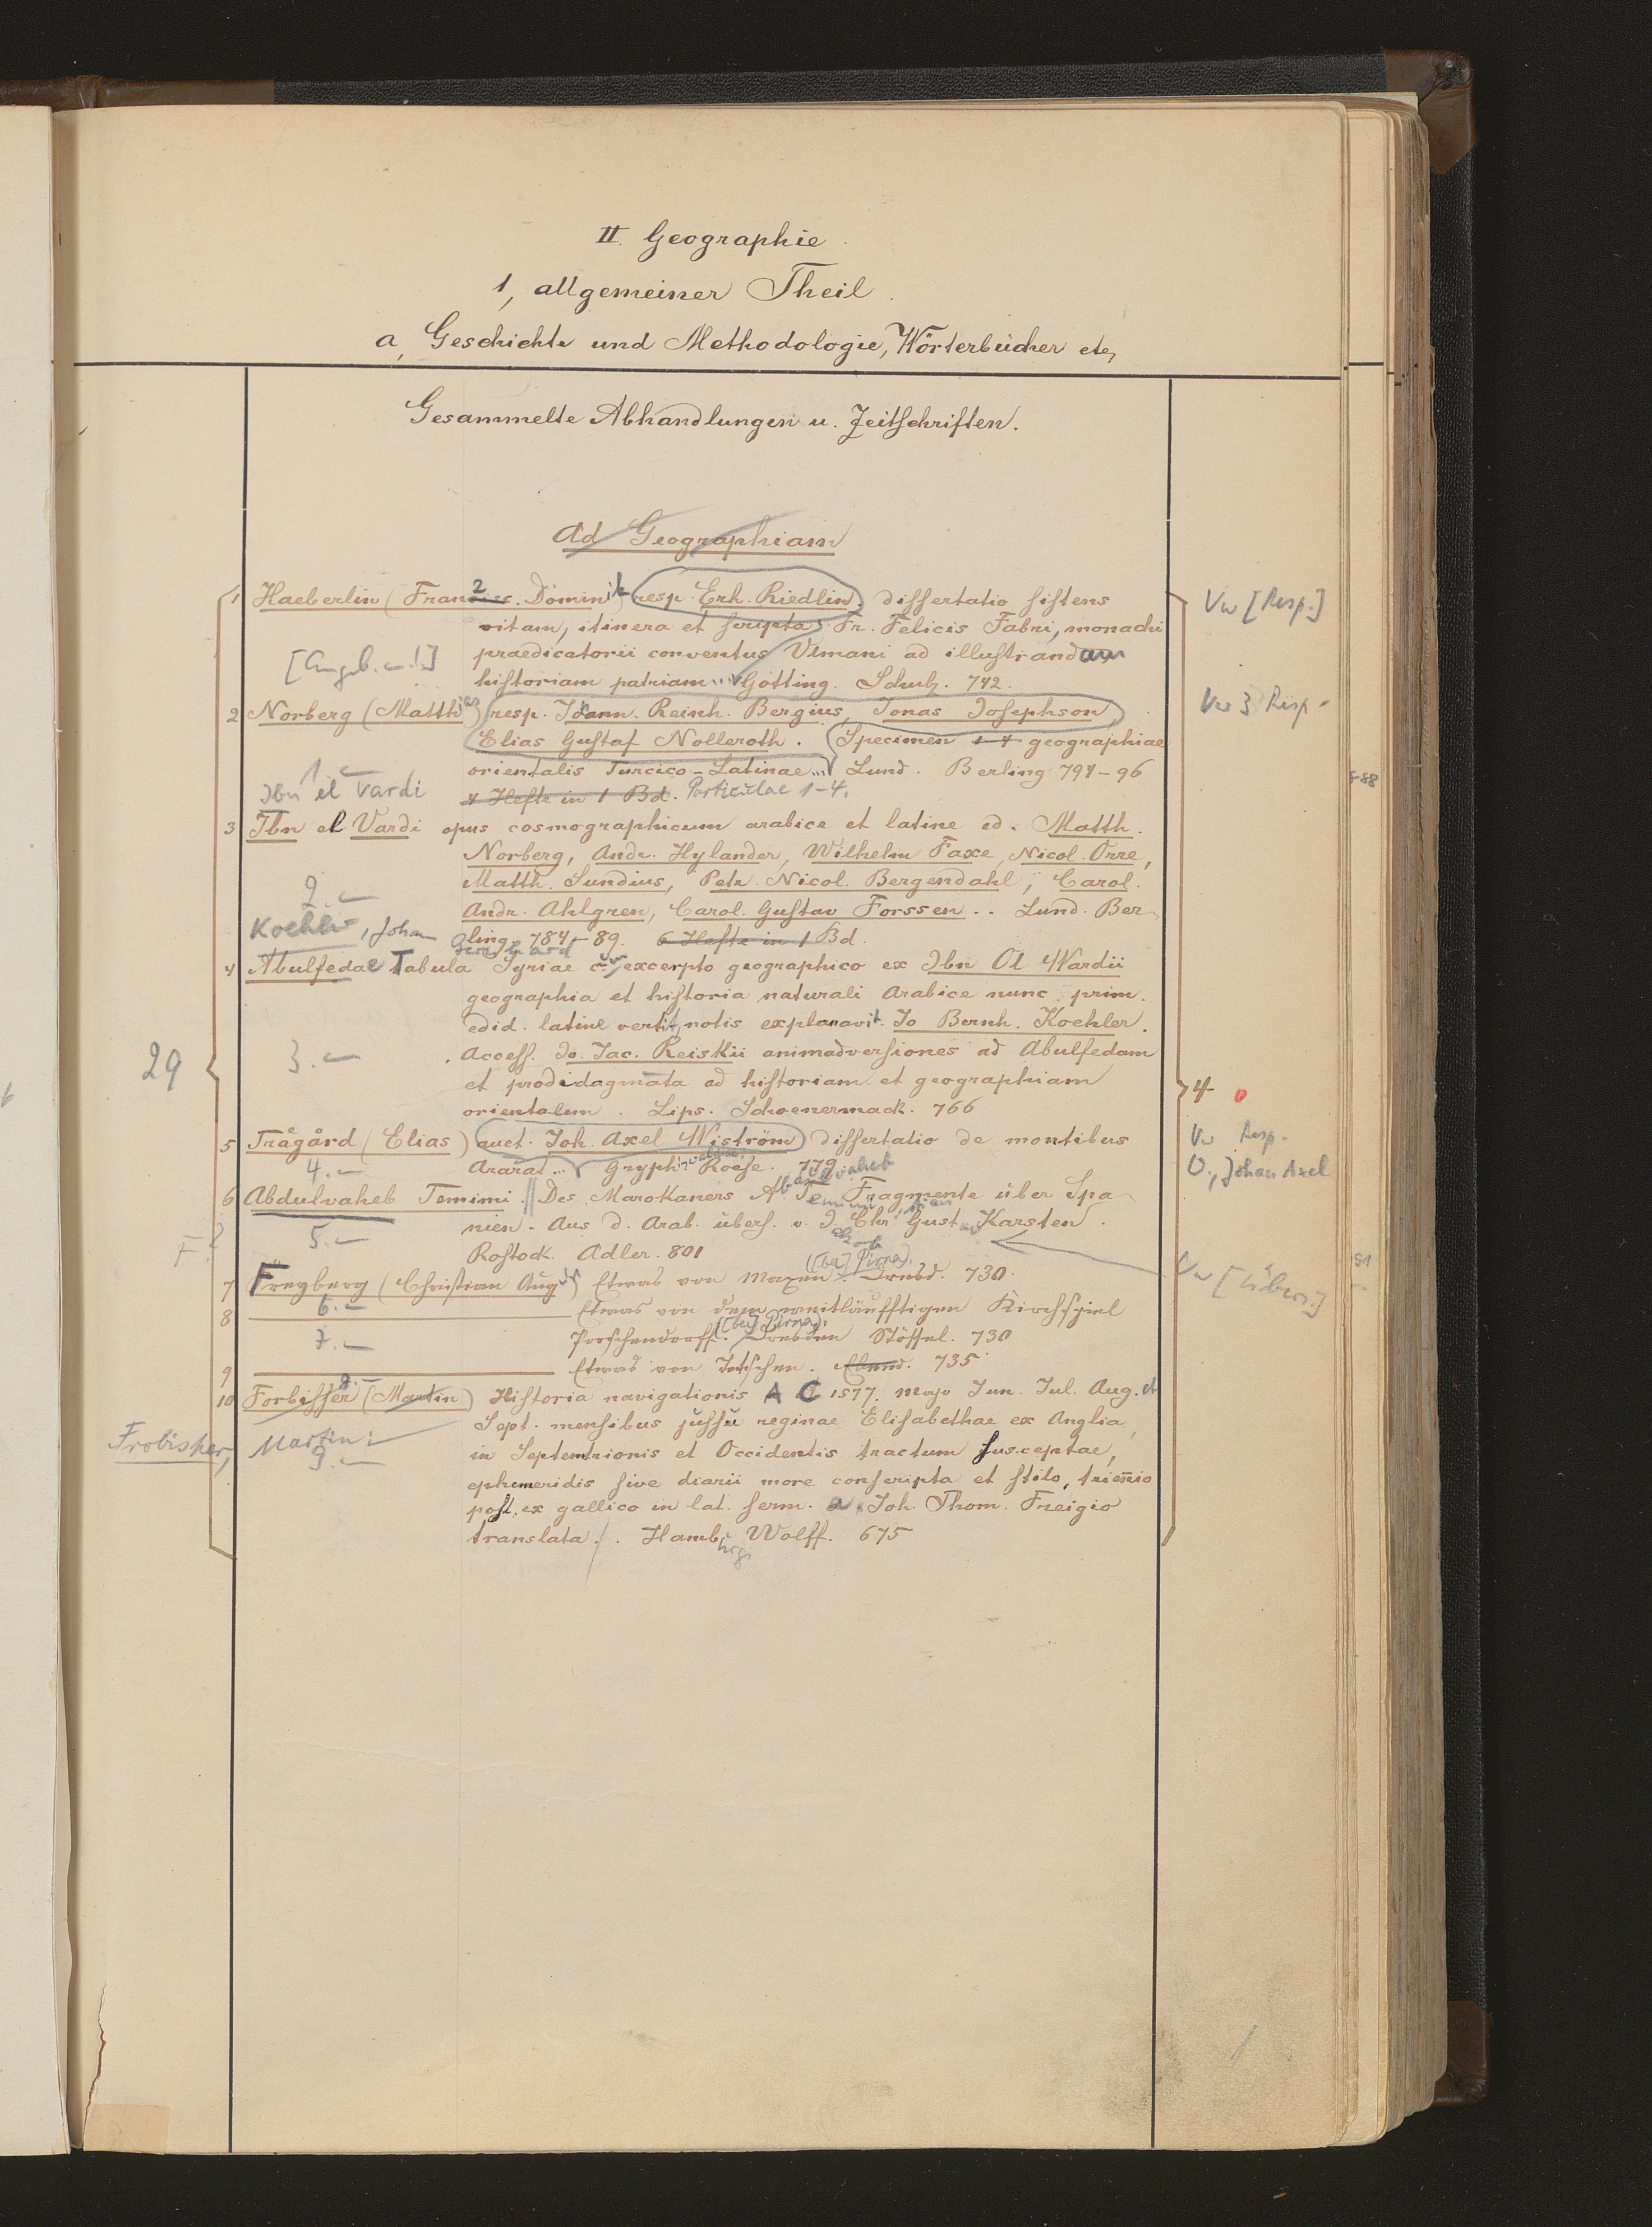 II. Geographie.
1, allgemeiner Theil.
a, Geschichte und Methodologie, Wörterbücher etc,
Gesammelte Abhandlungen u. Zeitschriften.
Ad Geographiam
1 Haeberlin (Franzisc. Dominik) resp. Erh. Riedlin. dissertatio sistens
Vw [Resp.]
vitam, itinera et scripta Fr. Felicis Fabri, monachi
praedicatorii conventus Ulmani ad illustrandam
[Angeb. 1]
historiam patriam ... Götting. Schulz. 742.
2 Norberg (Matthias) resp. Johann. Reinh. Bergius, Jonas Josephson,
Vw 3 Resp.
Elias Gustaf Nolleroth. Specimen 1-4 geographiae
orientalis Turcico-Latinae... Lund. Berling 791-96
1.
Ibn el Vardi
4 Hefte in 1 Bd. Particulae 1-4.
3 Ibn el Vardi opus cosmographicum arabice et latine ed. Matth.
Norberg, Andr. Hylander, Wilhelm Faxe, Nicol. Orre,
Matth. Sundius, Petr. Nicol. Bergendahl, Carol.
2.
Andr. Ahlgren, Carol. Gustav Forssen .. Lund. Ber-
Koehler, Johan Bernhard
ling. 784-89. 6 Hefte in 1 Bd.
4 Abulfedae Tabula Syriae cum excerpto geographico ex Ibn Ol Wardii
geographia et historia naturali Arabice nunc prim.
edid. latine vertit, notis explanavit. Io Bernh. Koehler.
29
3.
Access. Io. Jac. Reiskii animadversiones ad Abulfedam
et prodidagmata ad historiam et geographiam
4
orientalem. Lips. Schoenermack. 766
5 Trägård (Elias) auct. Joh. Axel Wiström dissertatio de montibus
Vw Resp.
4.
Ararat... Gryphiswaldiae Roese. 779
O., Johan Axel
6 Abdulvaheb Temimi. Des Marokaners Abdulvaheb Temimi Fragmente über Spa-
nien. Aus d. Arab. übers. v. D. Chr. Gustav Karsten.
F?
5.
Rostock. Adler. 801
Vw [Übers.]
7 Freyberg (Christian Aug.) Etwas von Maxen ([bei] Pirna). Dresd. 730.
6.
8 Etwas von dem weitläufftigen Kirchspiel
7.
Porschendorff. ([bei] Pirna). Dresden Stössel. 730
9 Etwas von Jetschen. Ebend. 735
8.
10 Forbisser (Martin) Historia navigationis A C 1577. Majo Jun. Jul. Aug. et
Sept. mensibus jussu reginae Elisabethae ex Anglia,
Frobisher, Martin:
9.
in Septemtrionis et Occidentis tractum susceptae,
ephemeridis sive diarii more conscripta et stilo, trienio
post, ex gallico in lat. serm. a. Joh. Thom. Freigio
translata. Hamburg Wolff. 675